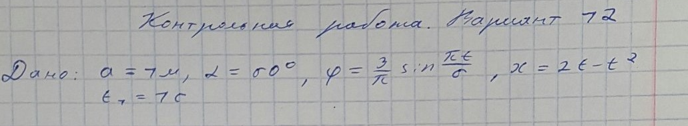 Контрольная работа. Вариант 12
Дано: a = 1 м, α = 60°, φ = 3/π sin πt/6, x = 2t - t²
t₁ = 1 с